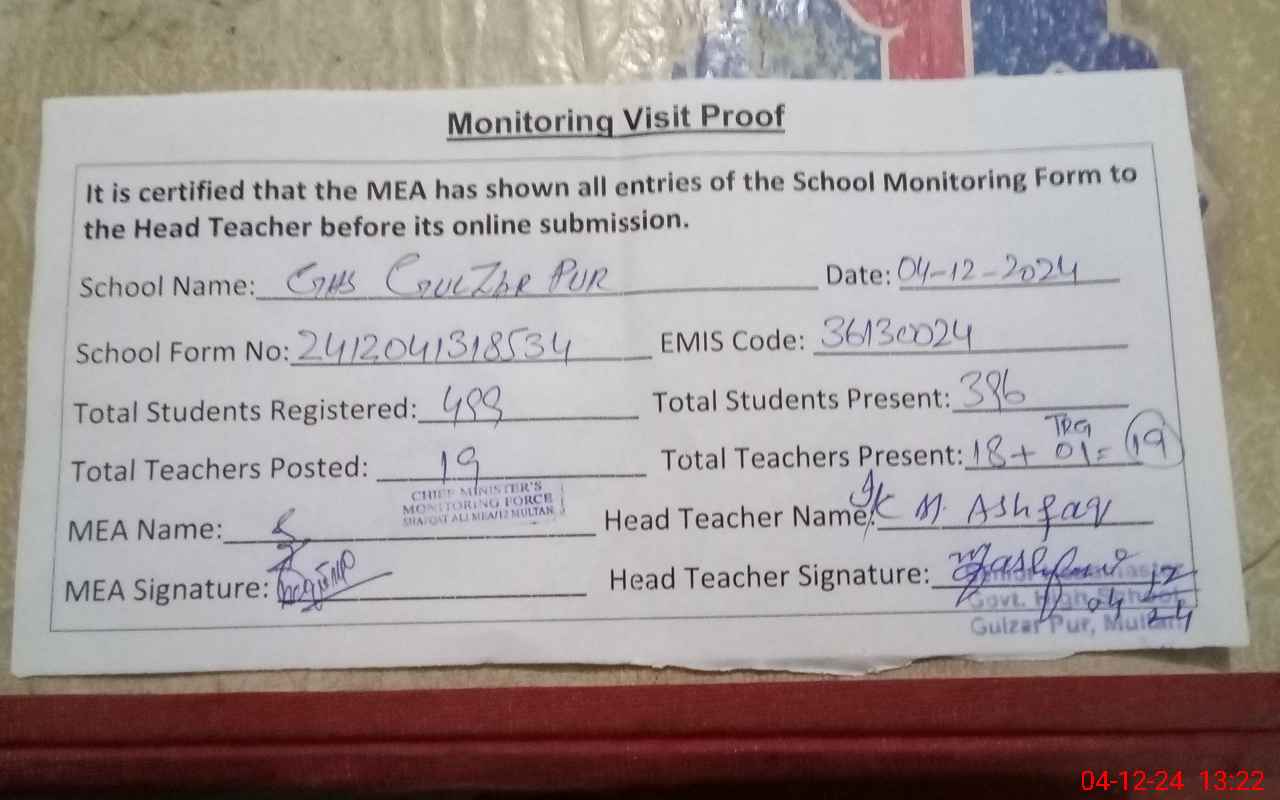 Monitoring Visit Proof
It is certified that the MEA has shown all entries of the School Monitoring Form to
the Head Teacher before its online submission.
School Name: GHS GULZAR PUR Date: 04-12-2024
School Form No: 2412041318534 EMIS Code: 36130024
Total Students Registered: 499 Total Students Present: 396
TRG
Total Teachers Posted: 19 Total Teachers Present: 18 + 01 = 19
CHIEF MINISTER'S
MONITORING FORCE
SHAFQAT ALI MEA/12 MULTAN
MEA Name: Head Teacher Name: M. Ashfaq
MEA Signature: Head Teacher Signature:
04 12 24
Govt. High School,
Gulzar Pur, Multan
04-12-24 13:22